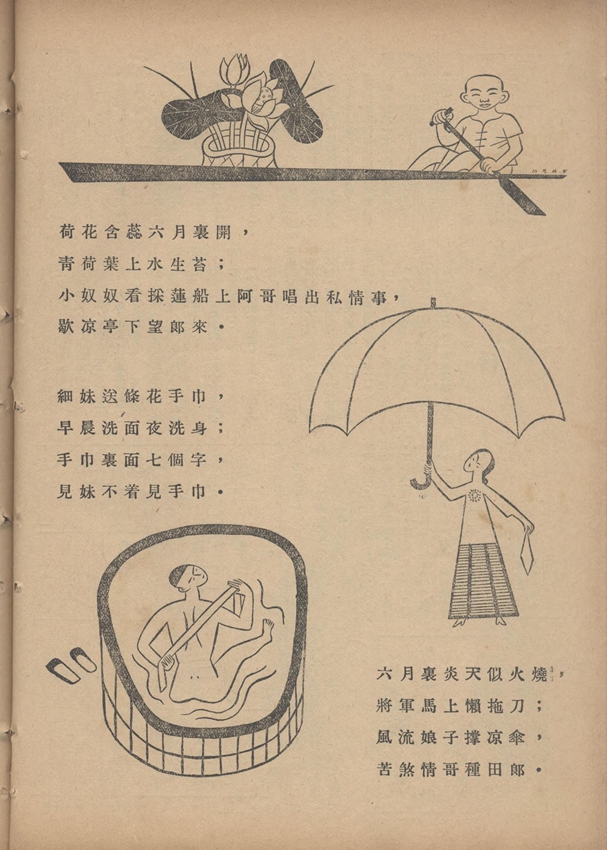 荷花含蕊六月裏開，
靑荷葉上水生苔；
小奴奴看採蓮船上阿哥唱出私情事，
歇凉亭下望郞來．
細妹送條花手巾，
早晨洗面夜洗身；
手巾裏面七個字，
見妹不着見手巾．
六月裏炎天似火燒，
將軍馬上懶拖刀；
風流娘子撑凉傘，
苦煞情哥種田郞．